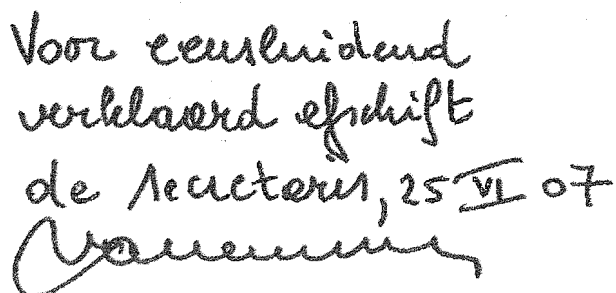 Voor eensluidend
verklaard afschrift
de secretaris, 25 VI 07